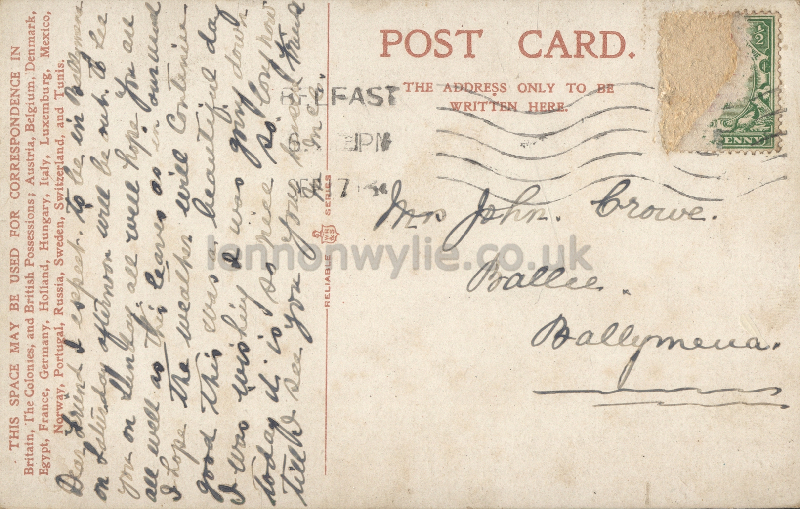 THIS SPACE MAY BE USED FOR CORRESPONDENCE IN
Britain, The Colonies, and British Possessions; Austria, Belgium, Denmark,
Egypt, France, Germany, Holland, Hungary, Italy, Luxemburg, Mexico,
Norway, Portugal, Russia, Sweden, Switzerland, and Tunis.
Dear Friend I expect to be in Ballymena
on Saturday afternoon will be out to see
you on Sunday all well hope you are
all well as this leaves as in our usual
I hope the weather will Continue
good this was a beautiful day
I was wishing I was going down
today it is so nice so long now
till I see you your
RELIABLE SERIES
POST CARD.
THE ADDRESS ONLY TO BE
WRITTEN HERE.
BELFAST
PM
7
½
ENNY
Mrs John. Crowe.
Ballee.
Ballymena.
lennonwylie.co.uk